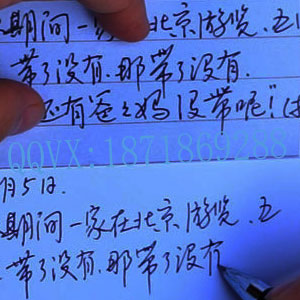 期间一家 北京游览.五
带了没有.那带了没有.
还有爸爸妈没带呢!"
QQVX:1871869288
月5日.
期间一家在北京游览.五
带了没有.那带了没有